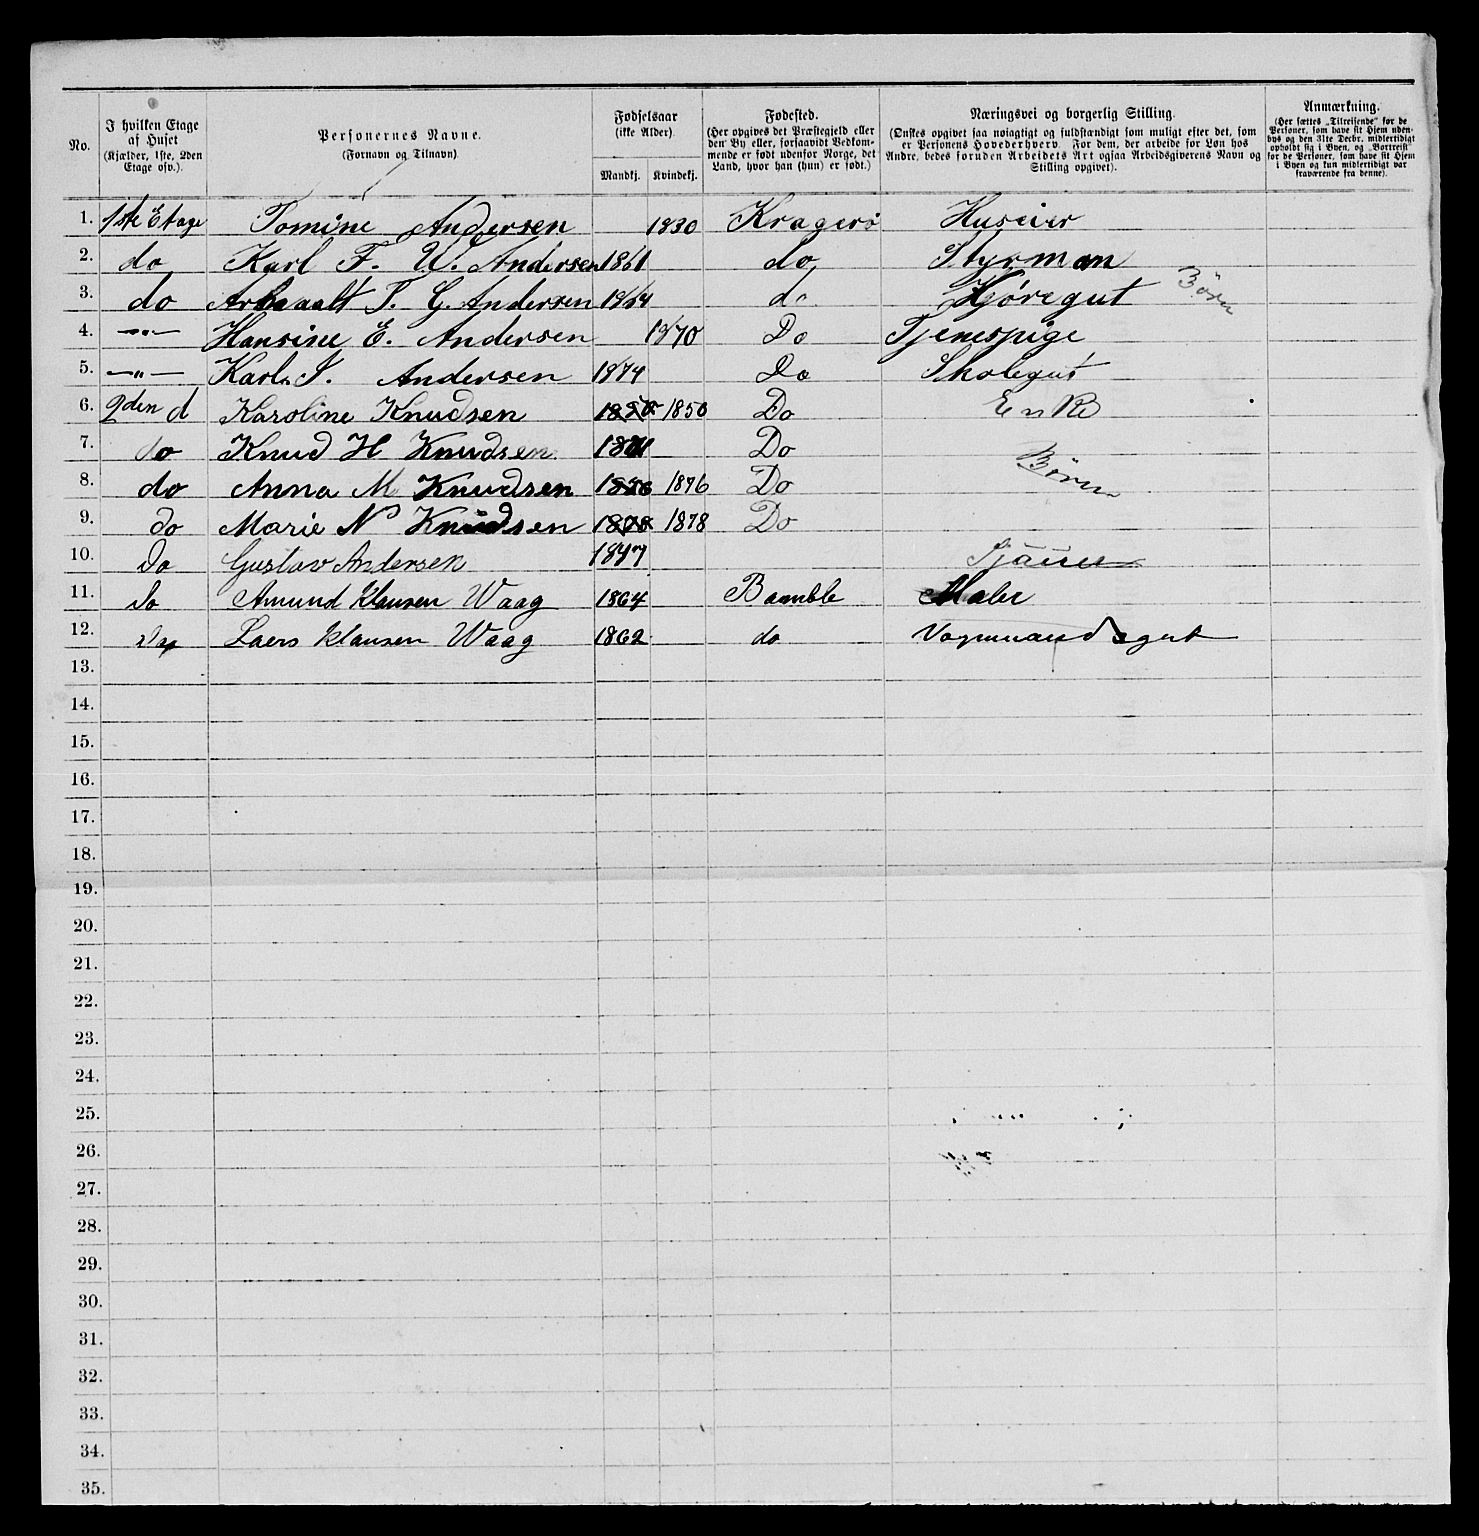 No. | I hvilken Etage af Huset (Kjælder, 1ste, 2den Etage osv.). | Personernes Navne. (Fornavn og Tilnavn) | Fødselsaar (ikke Alder) Mandkj. | Kvindekj. | Fødested. (Her opgives det Præstegjeld eller den By eller, forsaavidt Vedkommende er født udenfor Norge, det Land, hvor han (hun) er født.) | Næringsvei og borgerlig Stilling. (Ønskes opgivet saa nøiagtigt og fuldstændigt som muligt efter det, som er Personens Hovederhverv. For dem, der arbeide for Løn hos Andre, bedes foruden Arbeidets Art ogsaa Arbeidsgiverens Navn og Stilling opgivet). | Anmærkning. (Her sættes „Tilreisende" for de Personer, som have sit Hjem udenbys og den 31te Decbr. midlertidigt opholdt sig i Byen, og „Bortreist" for de Personer, som have sit Hjem i Byen og kun midlertidigt var fraværende fra denne).
1. 1ste Etage Tomine Andersen 1830 Kragerö Huseier
2. do Karl F. W. Andersen 1861 do Styrman
3. do T. G. Andersen 1864 do Kjøregut Börn
4. —"— Hansine E. Andersen 1870 Do Tjenespige
5. —"— Karl S. Andersen 1874 Do Skolegut
6. 2den d Karoline Knudsen 1850 1850 Do Enke
7. do Knud H Knudsen 1871 Do
8. do Anna M Knudsen 1876 Do Börn
9. do Marie N Knudsen 1878 1878 Do
10. Do Gustav Andersen 1847
11. Do Amund Klausen Waag 1864 Bamble Maler
12. Do Laers Klausen Waag 1862 do Vognmandsgut
13.
14.
15.
16.
17.
18.
19.
20.
21.
22.
23.
24.
25.
26.
27.
28.
29.
30.
31.
32.
33.
34.
35.